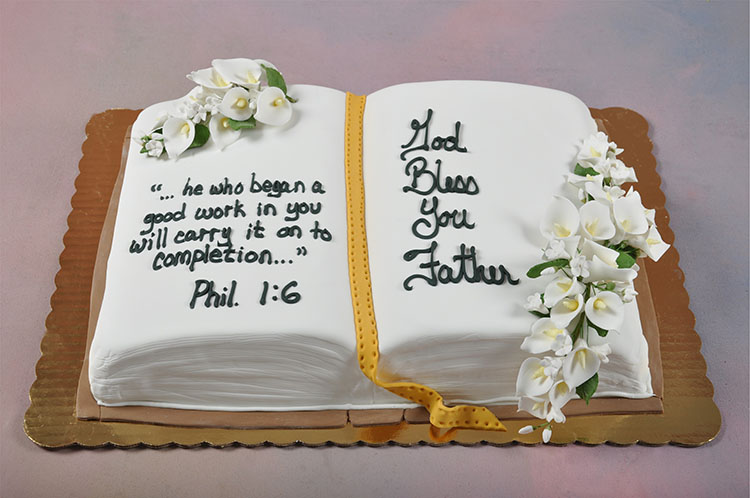 “... he who began a
good work in you
will carry it on to
completion...”
Phil. 1:6
God
Bless
You
Father